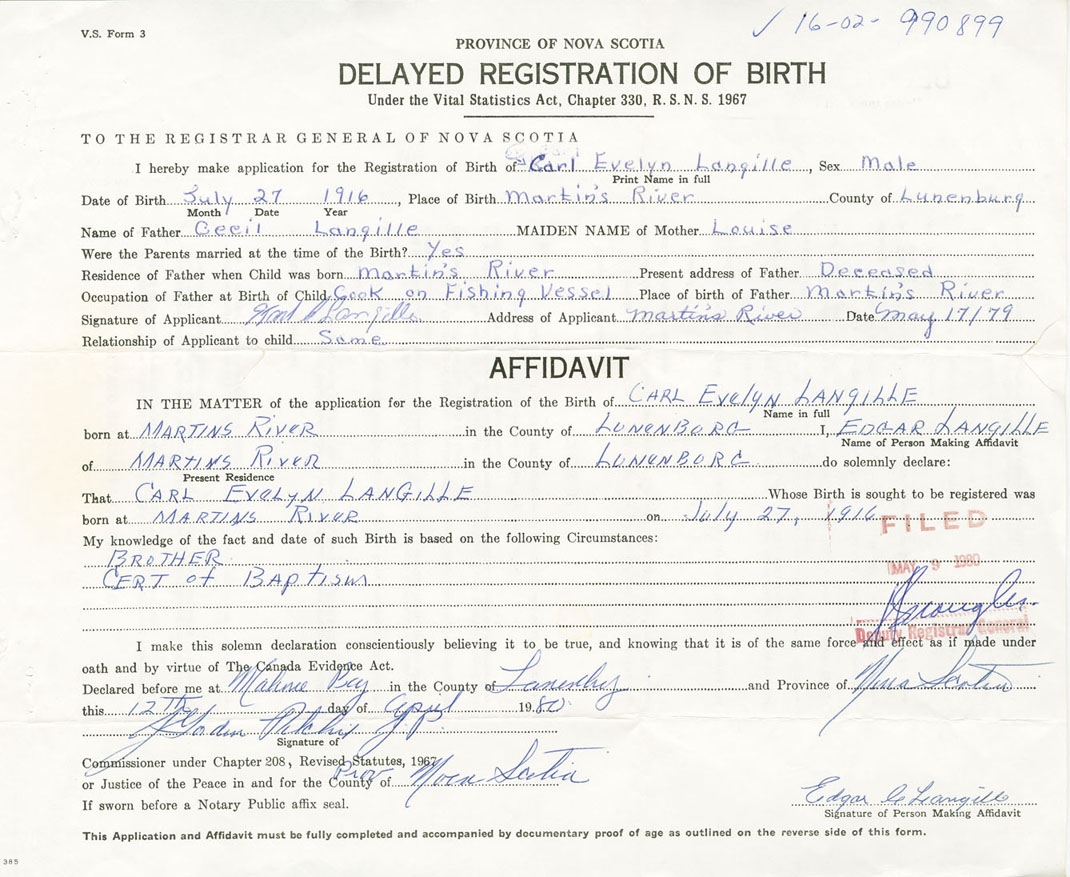 V.S. Form 3
✓ 16-02- 990899
PROVINCE OF NOVA SCOTIA
DELAYED REGISTRATION OF BIRTH
Under the Vital Statistics Act, Chapter 330, R. S. N. S. 1967
TO THE REGISTRAR GENERAL OF NOVA SCOTIA
I hereby make application for the Registration of Birth of Carl Evelyn Langille, Sex Male
Print Name in full
Date of Birth July 27 1916, Place of Birth Martin's River County of Lunenburg
Month Date Year
Name of Father Cecil Langille MAIDEN NAME of Mother Louise
Were the Parents married at the time of the Birth? Yes
Residence of Father when Child was born Martin's River Present address of Father Deceased
Occupation of Father at Birth of Child Cook on Fishing Vessel Place of birth of Father Martin's River
Signature of Applicant Langille Address of Applicant Martin's River Date May 17/79
Relationship of Applicant to child Same
AFFIDAVIT
IN THE MATTER of the application for the Registration of the Birth of CARL EVELYN LANGILLE
Name in full
born at MARTINS RIVER in the County of LUNENBURG I, EDGAR LANGILLE
Name of Person Making Affidavit
of MARTINS RIVER in the County of LUNENBURG do solemnly declare:
Present Residence
That CARL EVELYN LANGILLE Whose Birth is sought to be registered was
born at MARTINS RIVER on July 27, 1916
FILED
My knowledge of the fact and date of such Birth is based on the following Circumstances:
BROTHER
MAY 9 1980
CERT of BAPTISM
Deputy Registrar General
I make this solemn declaration conscientiously believing it to be true, and knowing that it is of the same force and effect as if made under
oath and by virtue of The Canada Evidence Act.
Declared before me at Mahone Bay in the County of Lunenburg and Province of Nova Scotia
this 12TH day of April 1980
Signature of
Commissioner under Chapter 208, Revised Statutes, 1967
or Justice of the Peace in and for the County of Prov. Nova Scotia
If sworn before a Notary Public affix seal.
Edgar C Langille
Signature of Person Making Affidavit
This Application and Affidavit must be fully completed and accompanied by documentary proof of age as outlined on the reverse side of this form.
385